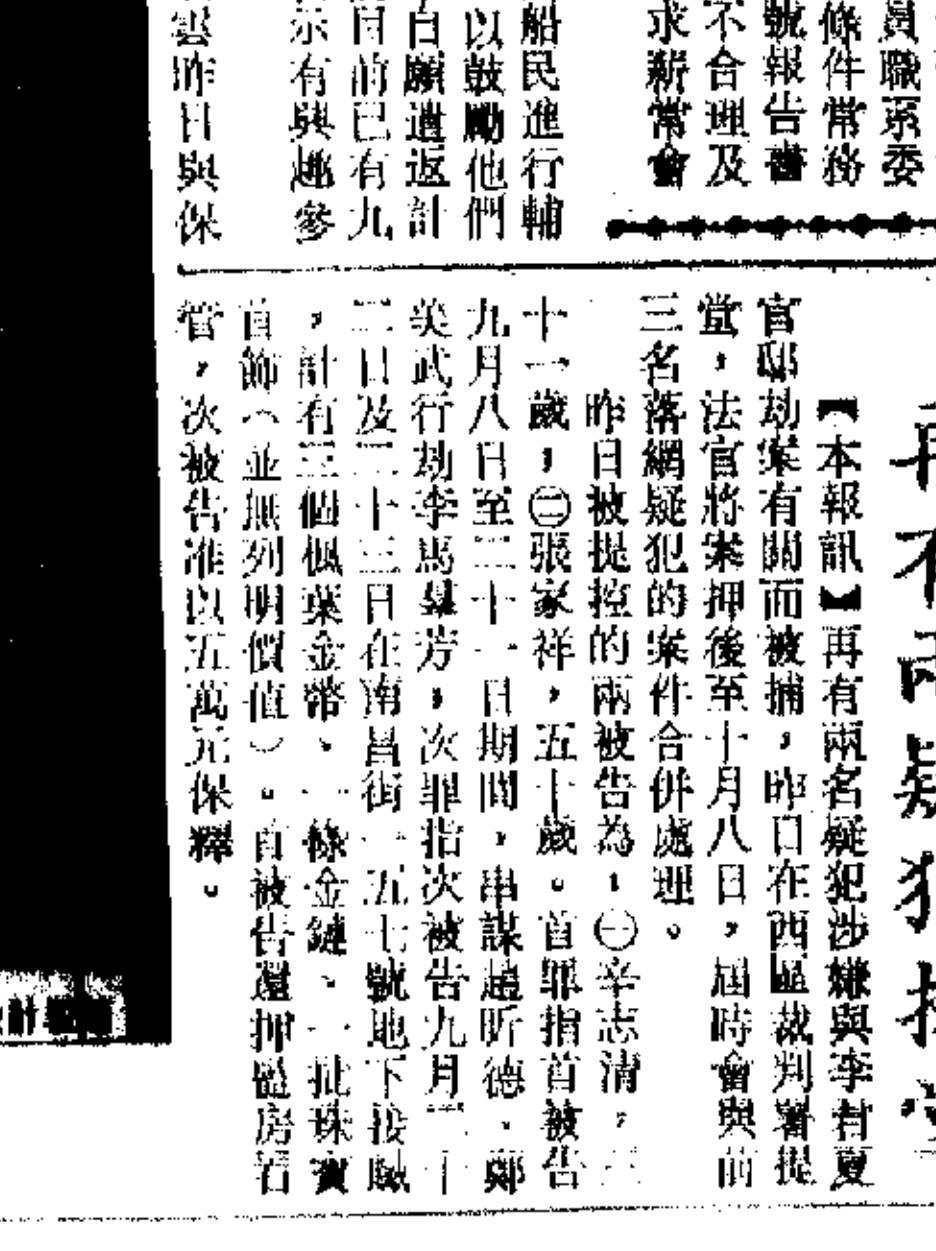 員職系委
條件常務
號報告書
不合理及
求薪常會
船民進行輔
以鼓勵他們
自願遣返計
目前已有九
示有興趣參
雲昨日與保
再有兩疑犯提堂
【本報訊】再有兩名疑犯涉嫌與李君夏
官邸劫案有關而被捕,昨日在西區裁判署提
堂,法官將案押後至十月八日,屆時會與前
三名落網疑犯的案件合併處理。
昨日被提控的兩被告為:㊀辛志清,三
十一歲,㊁張家祥,五十歲。首罪指首被告
九月八日至二十一日期間,串謀趙昕德、鄭
美武行劫李馬羣芳,次罪指次被告九月二十
二日及二十三日在南昌街一五七號地下接贓
,計有三個楓葉金幣、一條金鏈、一批珠寶
首飾(並無列明價值)。首被告還押監房看
管,次被告准以五萬元保釋。